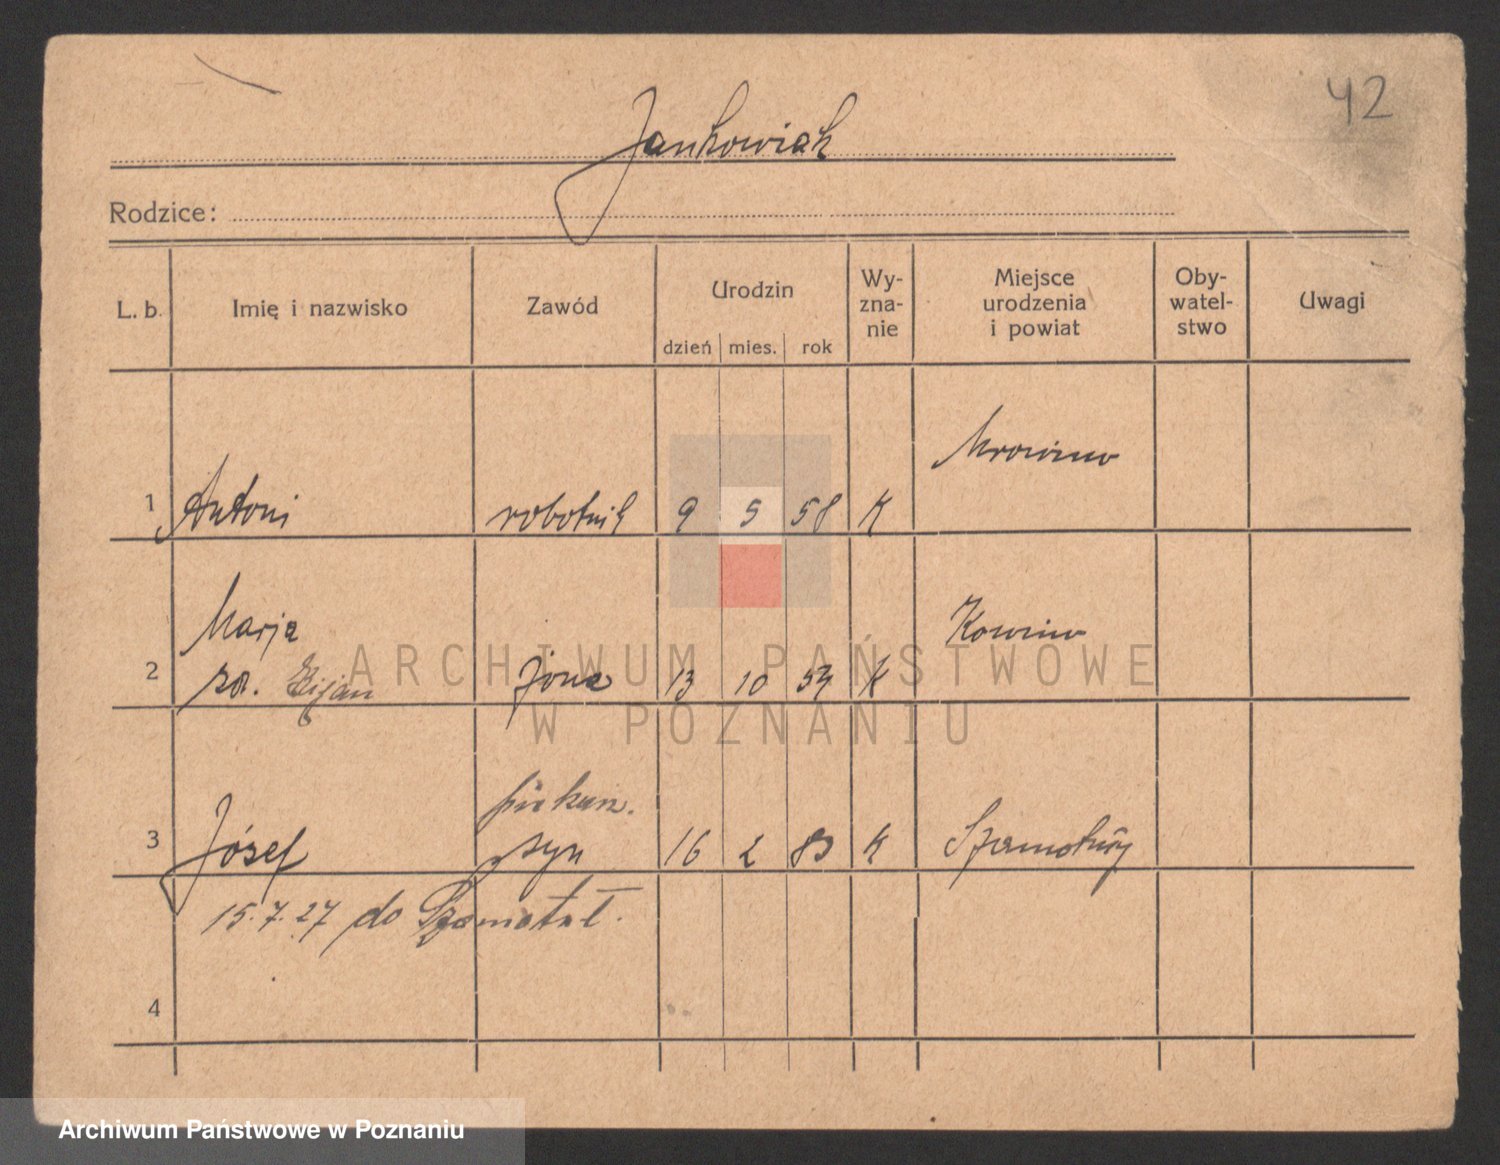 42
Jankowiak
Rodzice:
L. b. Imię i nazwisko Zawód Urodzin Wy-zna-nie Miejsce urodzenia i powiat Oby-watel-stwo Uwagi
dzień mies. rok
Mrowino
1 Antoni robotnik 9 5 58 K
Marja Kowino
2 za. żona 13 10 K
piekarz.
3 Józef syn 16 2 83 K Szamotuły
15.7.27 do Szamotuł.
4
ARCHIWUM PAŃSTWOWE
W POZNANIU
Archiwum Państwowe w Poznaniu